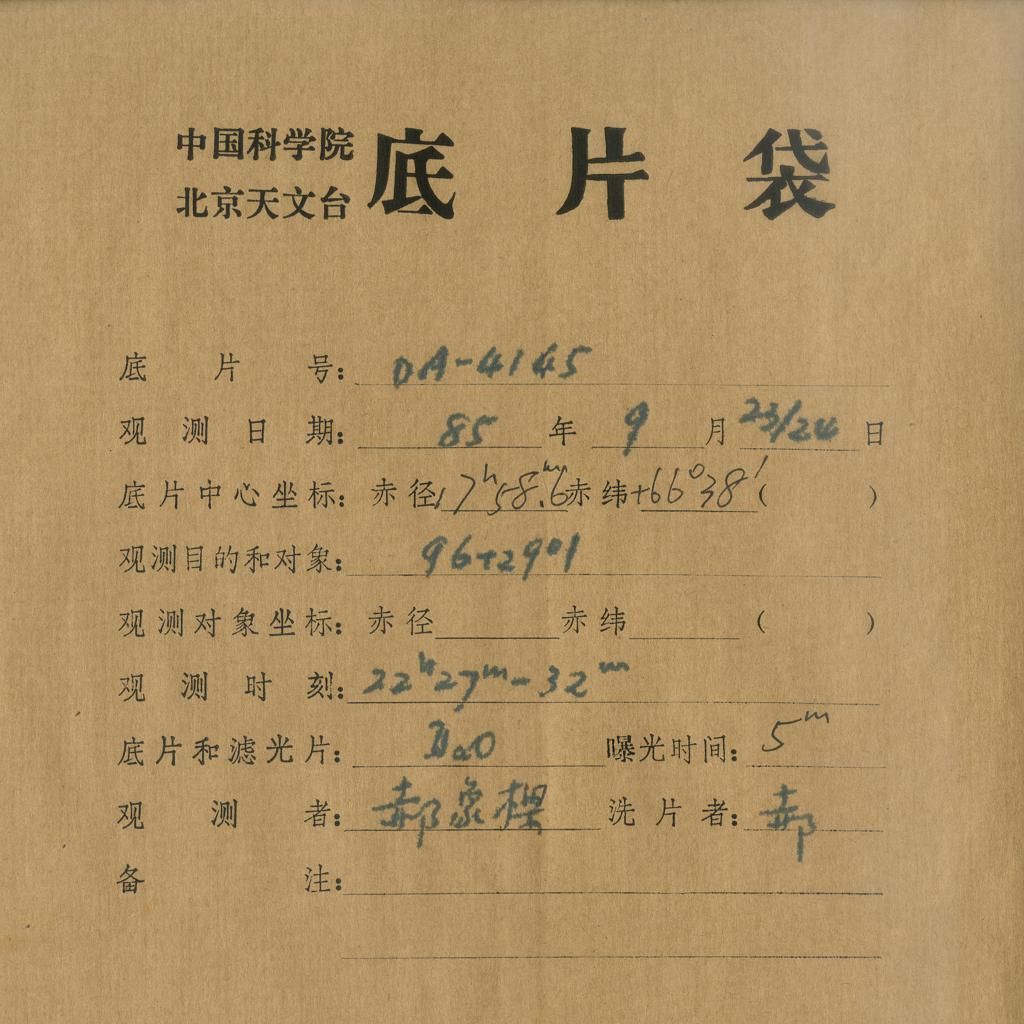 中国科学院
北京天文台
底片袋
底片号: DA-4145
观测日期: 85年9月23/24日
底片中心坐标: 赤径17h58.m6赤纬+66°38′( )
观测目的和对象: 96+2901
观测对象坐标: 赤径 赤纬 ( )
观测时刻: 22h27m-32m
底片和滤光片: IIaO 曝光时间: 5m
观测者: 郝象樑 洗片者: 郝
备注: